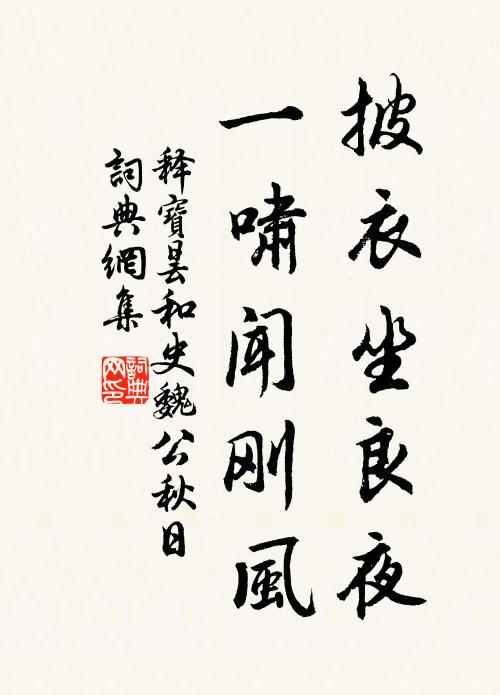 披衣坐良夜
一嘯闻刚風
释寶昙和史魏公秋日
詞典網集
詞典网印